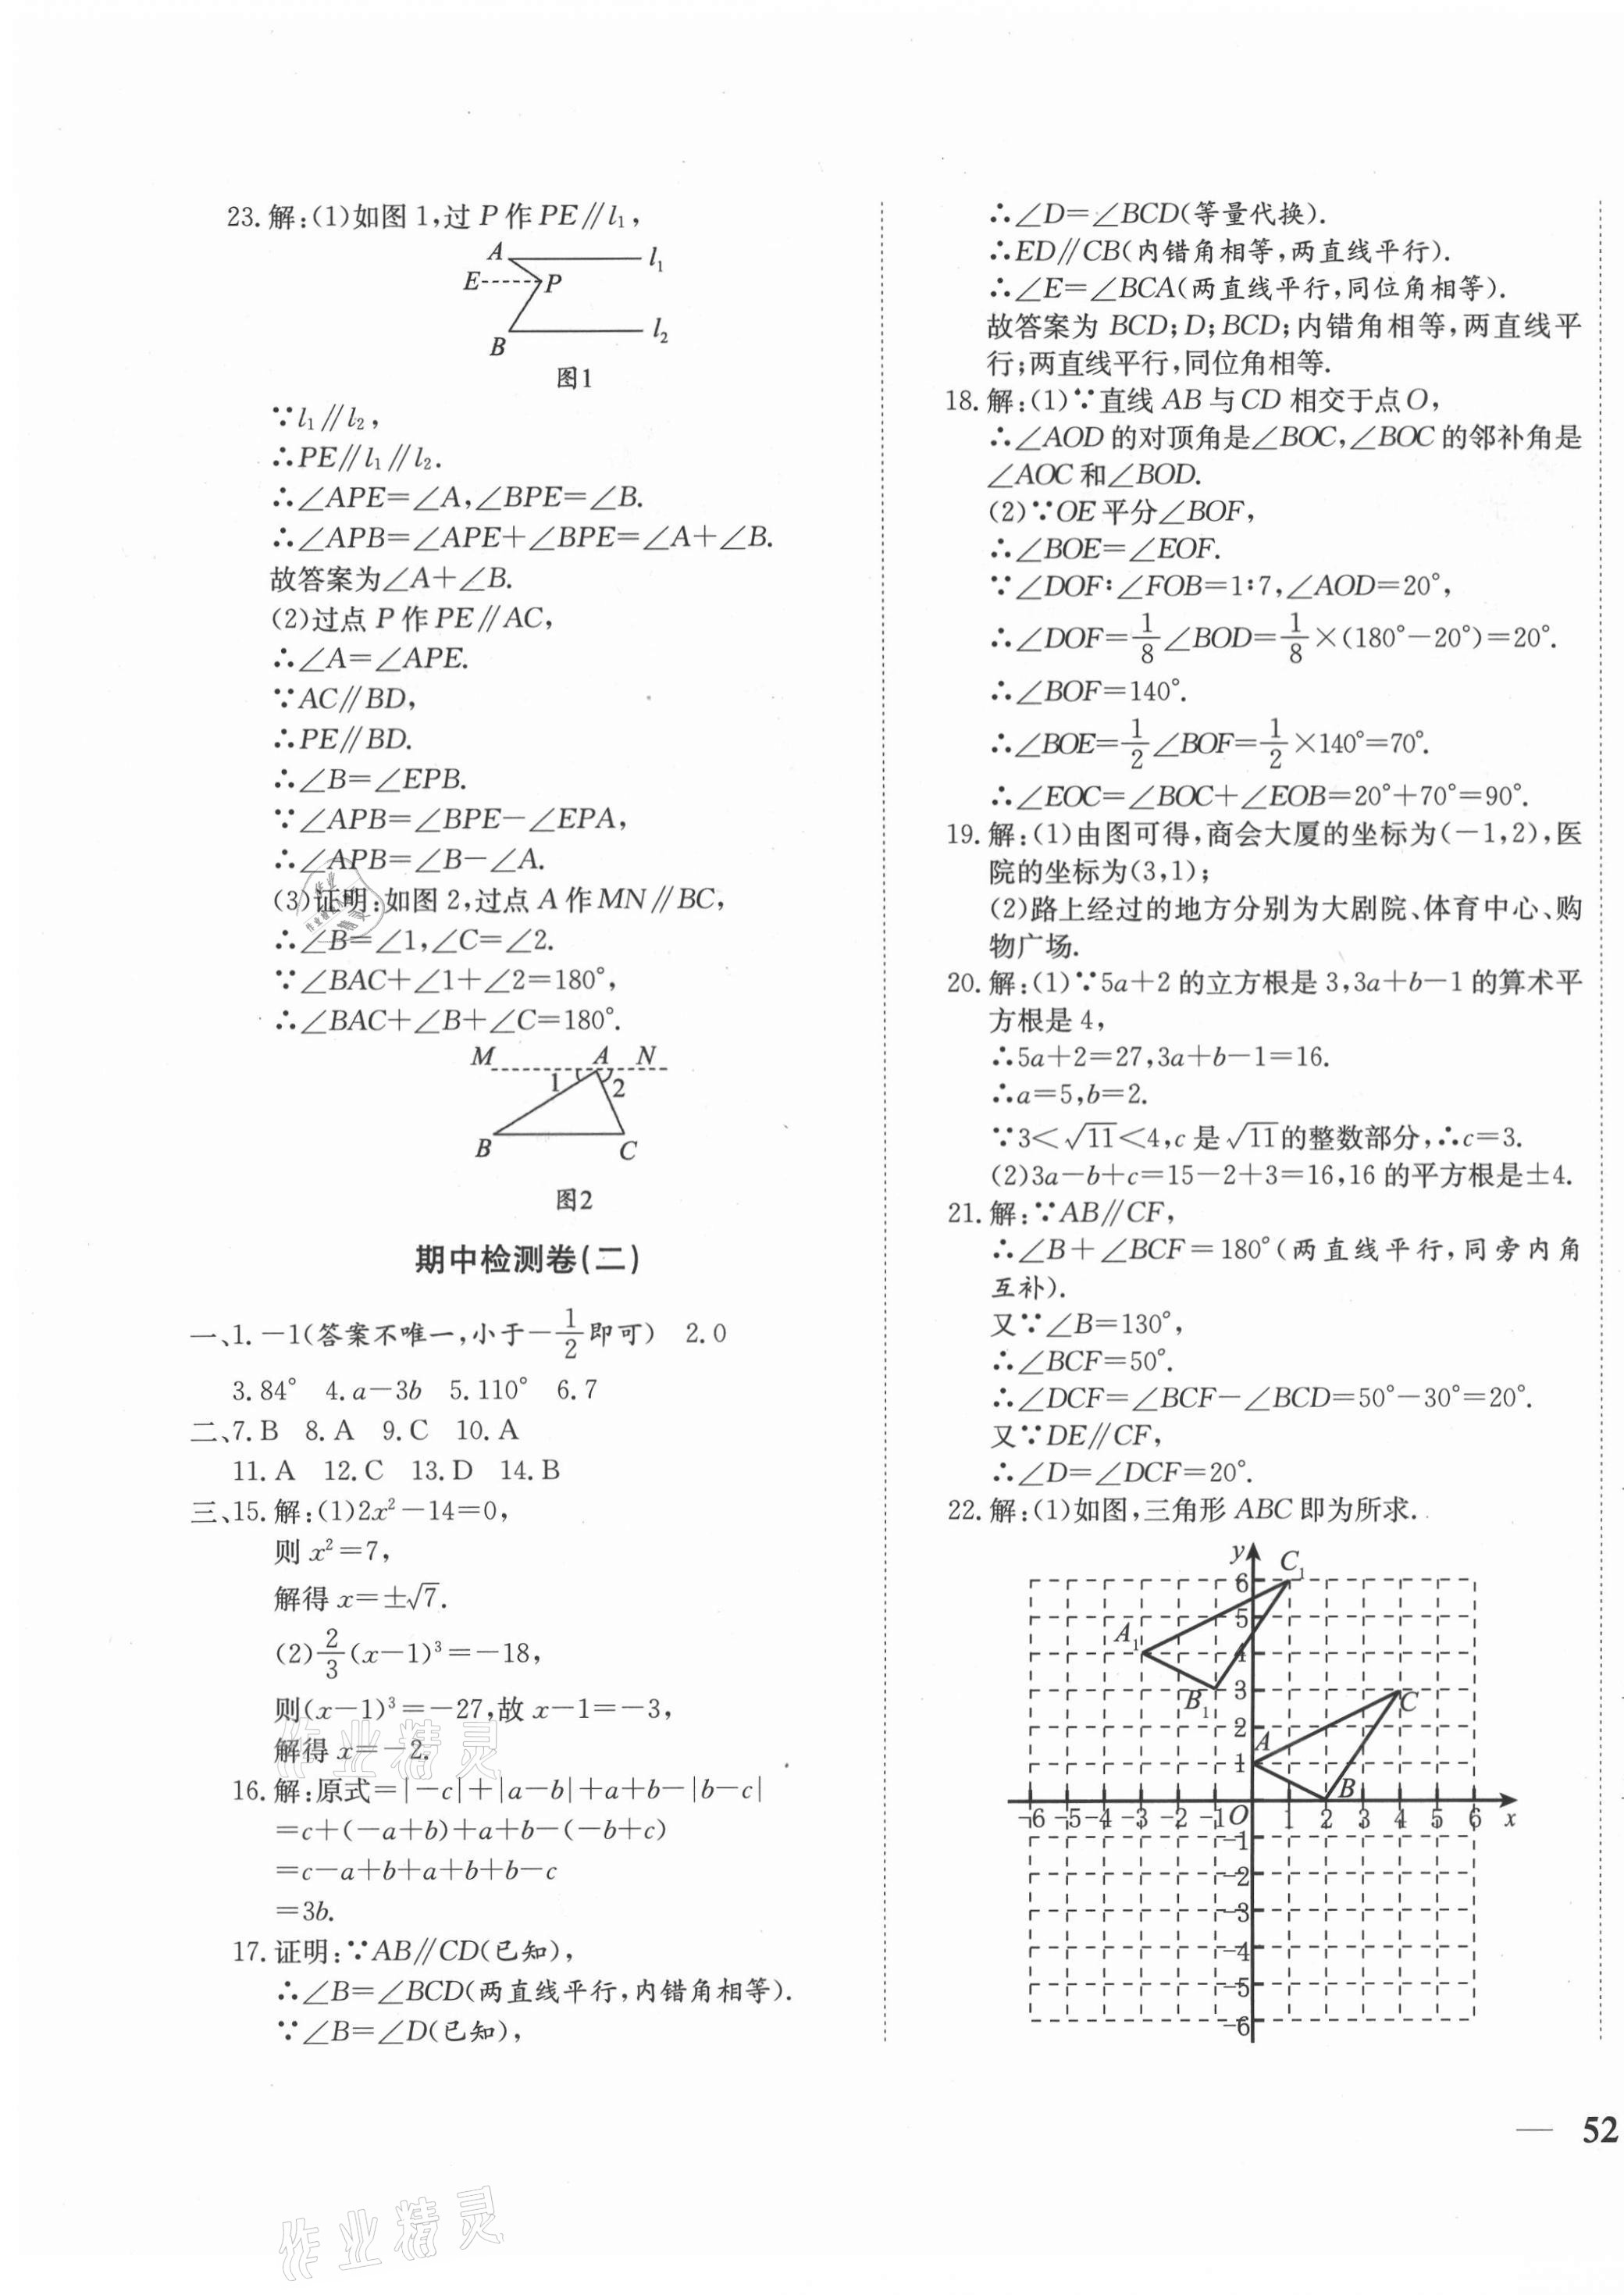 23. 解:(1)如图 1,过 P 作 PE∥l₁,
A
l₁
E
P
B
l₂
图1
∵l₁∥l₂,
∴PE∥l₁∥l₂.
∴∠APE=∠A,∠BPE=∠B.
∴∠APB=∠APE+∠BPE=∠A+∠B.
故答案为∠A+∠B.
(2)过点 P 作 PE∥AC,
∴∠A=∠APE.
∵AC∥BD,
∴PE∥BD.
∴∠B=∠EPB.
∵∠APB=∠BPE−∠EPA,
∴∠APB=∠B−∠A.
(3)证明:如图 2,过点 A 作 MN∥BC,
∴∠B=∠1,∠C=∠2.
∵∠BAC+∠1+∠2=180°,
∴∠BAC+∠B+∠C=180°.
M A N
1 2
B C
图2
期中检测卷(二)
一、1. −1(答案不唯一,小于−1/2即可) 2. 0
3. 84° 4. a−3b 5. 110° 6. 7
二、7. B 8. A 9. C 10. A
11. A 12. C 13. D 14. B
三、15. 解:(1)2x²−14=0,
则 x²=7,
解得 x=±√7.
(2)2/3(x−1)³=−18,
则(x−1)³=−27,故 x−1=−3,
解得 x=−2.
16. 解:原式=|−c|+|a−b|+a+b−|b−c|
=c+(−a+b)+a+b−(−b+c)
=c−a+b+a+b+b−c
=3b.
17. 证明:∵AB∥CD(已知),
∴∠B=∠BCD(两直线平行,内错角相等).
∵∠B=∠D(已知),
∴∠D=∠BCD(等量代换).
∴ED∥CB(内错角相等,两直线平行).
∴∠E=∠BCA(两直线平行,同位角相等).
故答案为 BCD;D;BCD;内错角相等,两直线平
行;两直线平行,同位角相等.
18. 解:(1)∵直线 AB 与 CD 相交于点 O,
∴∠AOD 的对顶角是∠BOC,∠BOC 的邻补角是
∠AOC 和∠BOD.
(2)∵OE 平分∠BOF,
∴∠BOE=∠EOF.
∵∠DOF∶∠FOB=1∶7,∠AOD=20°,
∴∠DOF=1/8∠BOD=1/8×(180°−20°)=20°.
∴∠BOF=140°.
∴∠BOE=1/2∠BOF=1/2×140°=70°.
∴∠EOC=∠BOC+∠EOB=20°+70°=90°.
19. 解:(1)由图可得,商会大厦的坐标为(−1,2),医
院的坐标为(3,1);
(2)路上经过的地方分别为大剧院、体育中心、购
物广场.
20. 解:(1)∵5a+2 的立方根是 3,3a+b−1 的算术平
方根是 4,
∴5a+2=27,3a+b−1=16.
∴a=5,b=2.
∵3<√11<4,c 是√11的整数部分,∴c=3.
(2)3a−b+c=15−2+3=16,16 的平方根是±4.
21. 解:∵AB∥CF,
∴∠B+∠BCF=180°(两直线平行,同旁内角
互补).
又∵∠B=130°,
∴∠BCF=50°.
∴∠DCF=∠BCF−∠BCD=50°−30°=20°.
又∵DE∥CF,
∴∠D=∠DCF=20°.
22. 解:(1)如图,三角形 ABC 即为所求.
y C₁
6
5
A₁
4
B₁ 3 C
2
A
1
B
−6 −5 −4 −3 −2 −1 O 1 2 3 4 5 6 x
−1
−2
−3
−4
−5
−6
— 52
作业精灵
作业精灵